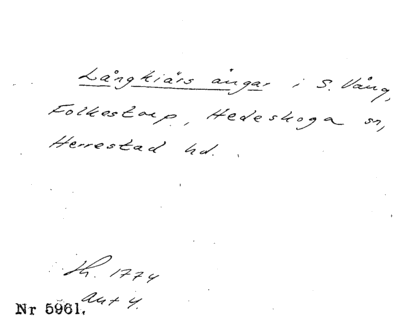 Långkiärs ängar i S. Vång,
Folkestorp, Hedeskoga sn,
Herrestad hd.
Sk. 1774
akt 4.
Nr 5961.